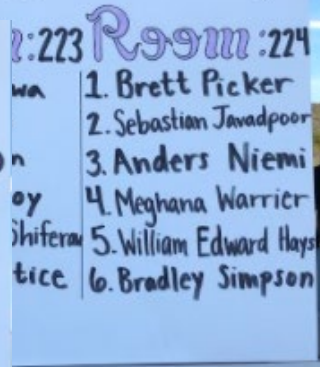 :223
wa
n
oy
Shiferaw
tice
Room:224
1. Brett Picker
2. Sebastian Javadpoor
3. Anders Niemi
4. Meghana Warrier
5. William Edward Hays
6. Bradley Simpson